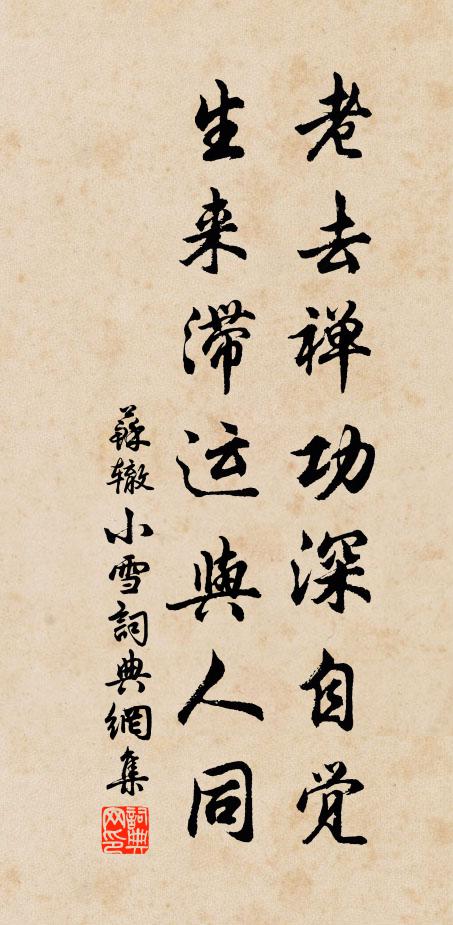 老去禅功深自觉
生来滞运與人同
蘇辙小雪詞典網集
詞典网印